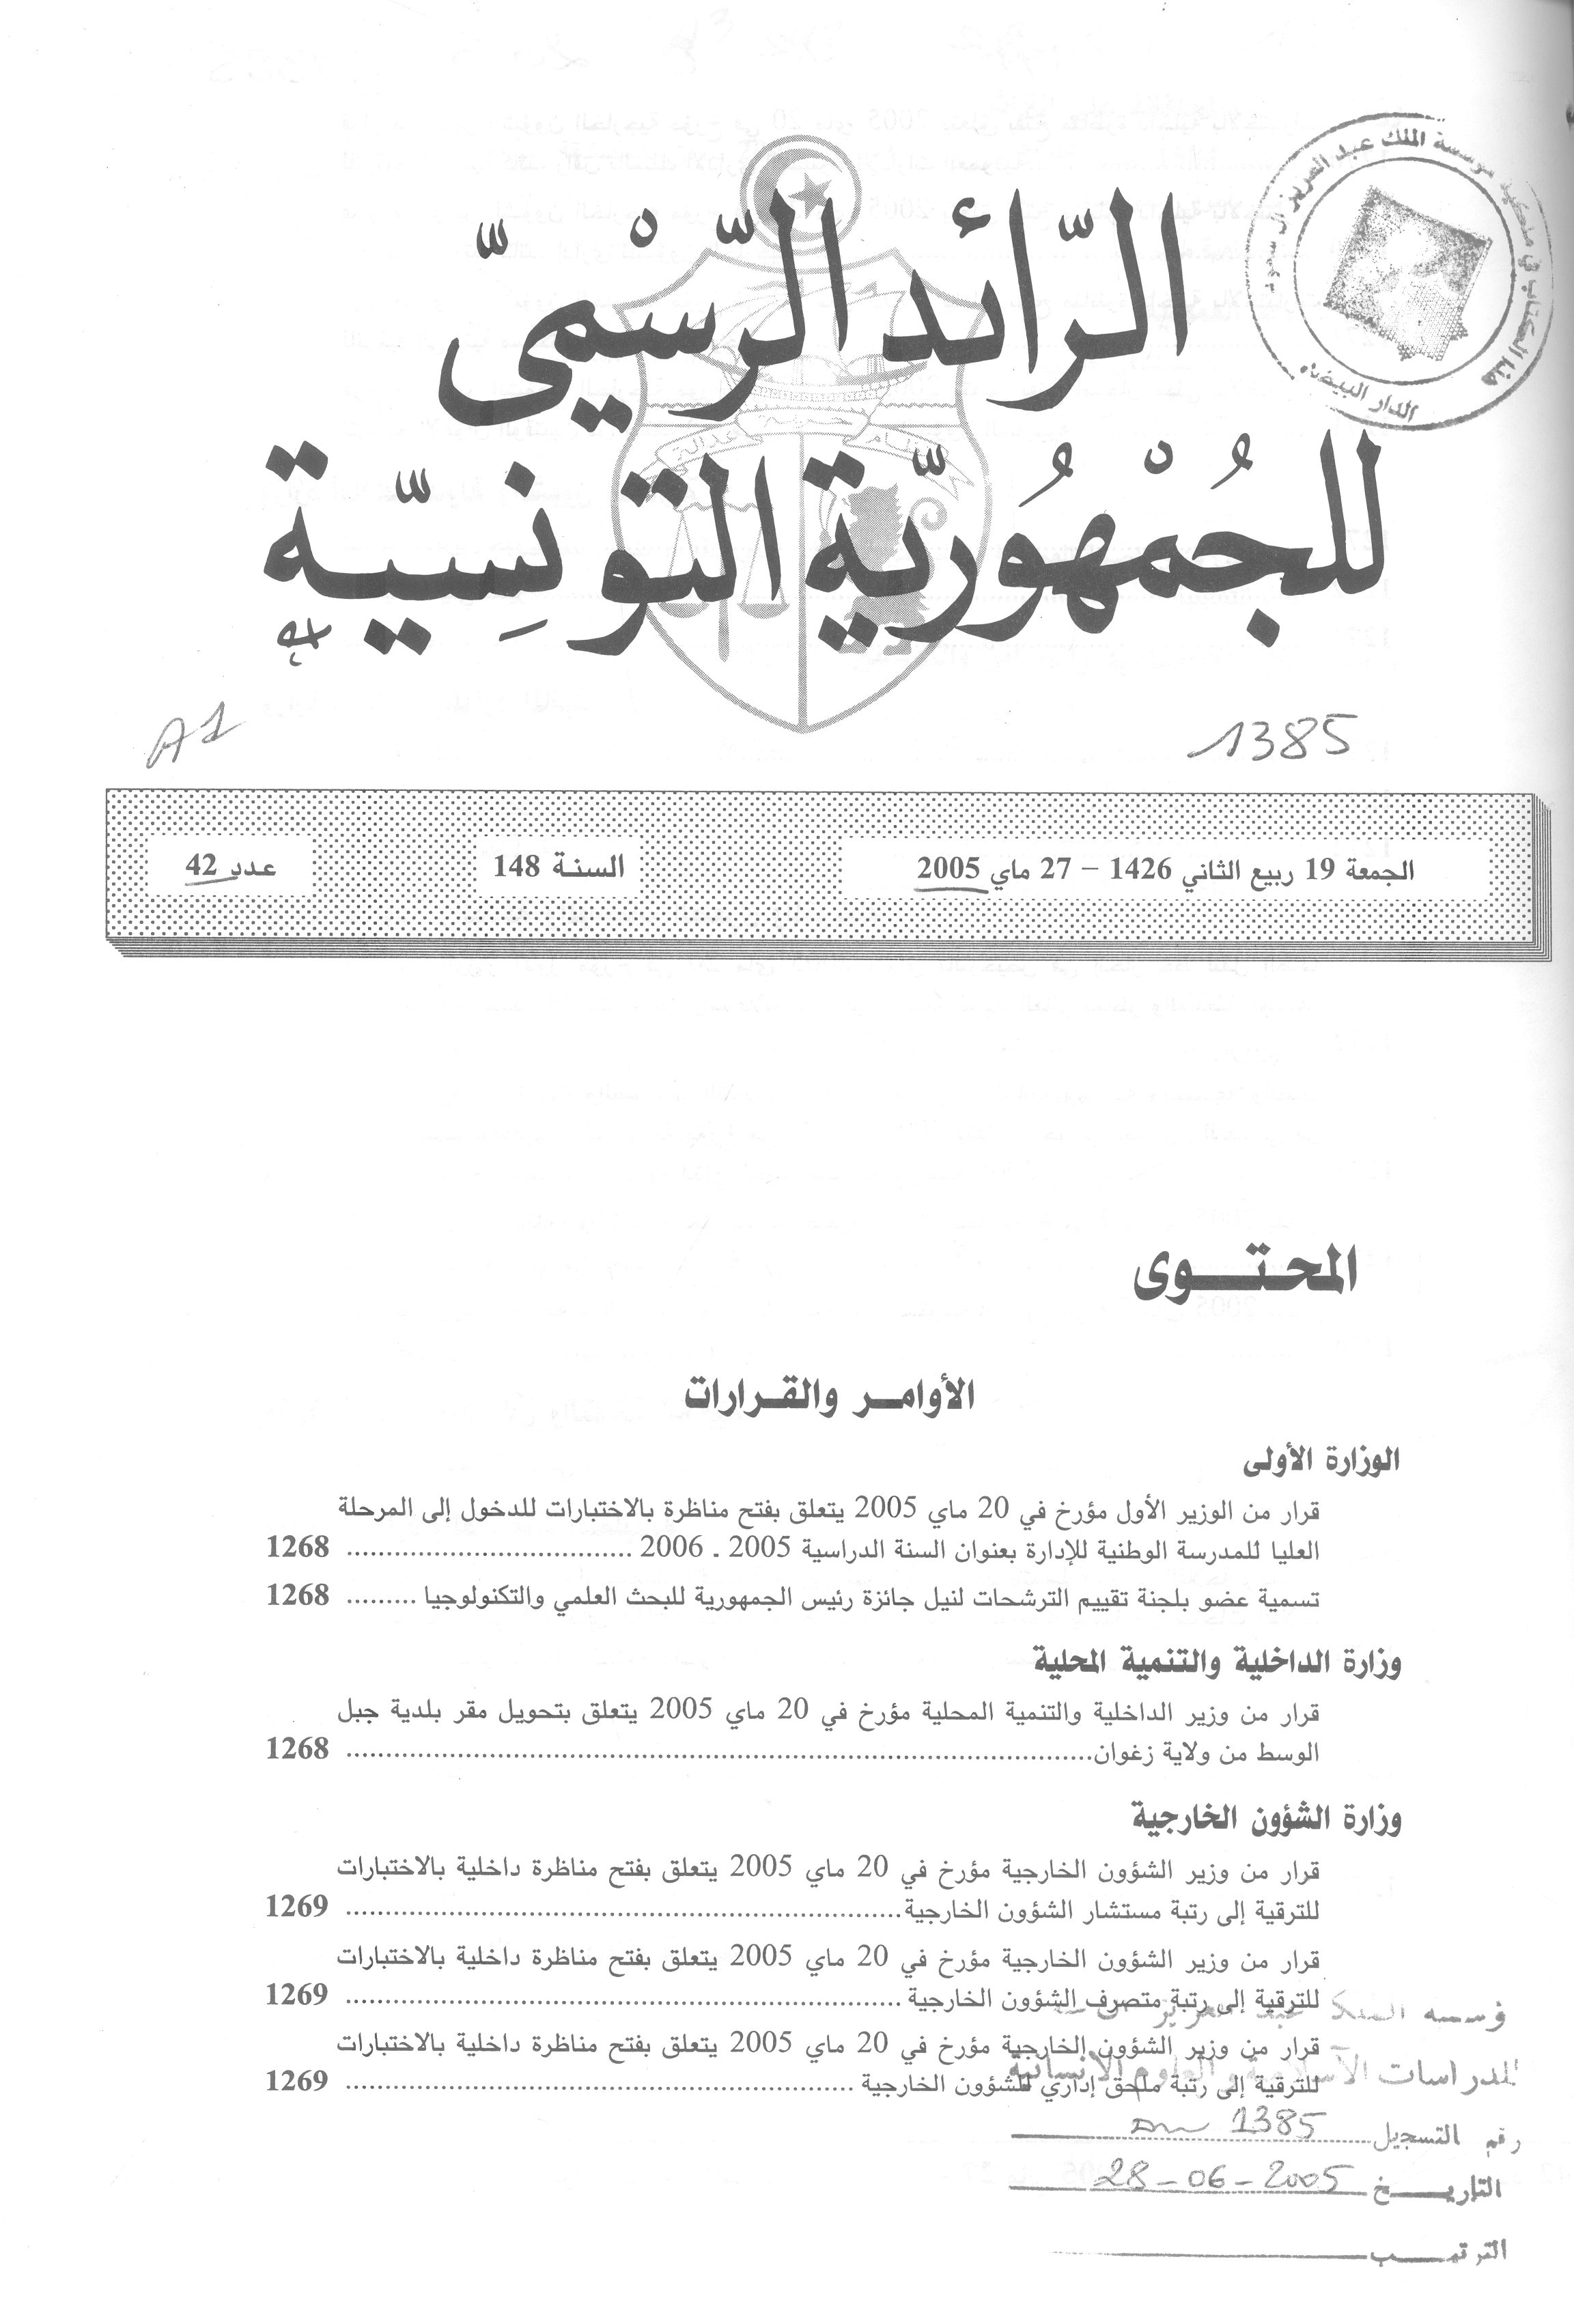 الرّائد الرّسْميّ
للجُمْهُوريّة التّونِسيّة
نظام حرية عدالة
هذا الكتاب في ملكية مؤسسة الملك عبد العزيز آل سعود
الدار البيضاء
A1
1385
الجمعة 19 ربيع الثاني 1426 – 27 ماي 2005
السنة 148
عدد 42
المحتوى
الأوامر والقرارات
الوزارة الأولى
قرار من الوزير الأول مؤرخ في 20 ماي 2005 يتعلق بفتح مناظرة بالاختبارات للدخول إلى المرحلة
العليا للمدرسة الوطنية للإدارة بعنوان السنة الدراسية 2005 ـ 2006 ................................. 1268
تسمية عضو بلجنة تقييم الترشحات لنيل جائزة رئيس الجمهورية للبحث العلمي والتكنولوجيا ......... 1268
وزارة الداخلية والتنمية المحلية
قرار من وزير الداخلية والتنمية المحلية مؤرخ في 20 ماي 2005 يتعلق بتحويل مقر بلدية جبل
الوسط من ولاية زغوان..................................................................................... 1268
وزارة الشؤون الخارجية
قرار من وزير الشؤون الخارجية مؤرخ في 20 ماي 2005 يتعلق بفتح مناظرة داخلية بالاختبارات
للترقية إلى رتبة مستشار الشؤون الخارجية................................................................ 1269
قرار من وزير الشؤون الخارجية مؤرخ في 20 ماي 2005 يتعلق بفتح مناظرة داخلية بالاختبارات
للترقية إلى رتبة متصرف الشؤون الخارجية ................................................................ 1269
قرار من وزير الشؤون الخارجية مؤرخ في 20 ماي 2005 يتعلق بفتح مناظرة داخلية بالاختبارات
للترقية إلى رتبة ملحق إداري للشؤون الخارجية .......................................................... 1269
للدراسات الاسلامية و العلوم الانسانية
رقم التسجيل 1385
التاريخ 28-06-2005
الترتيب